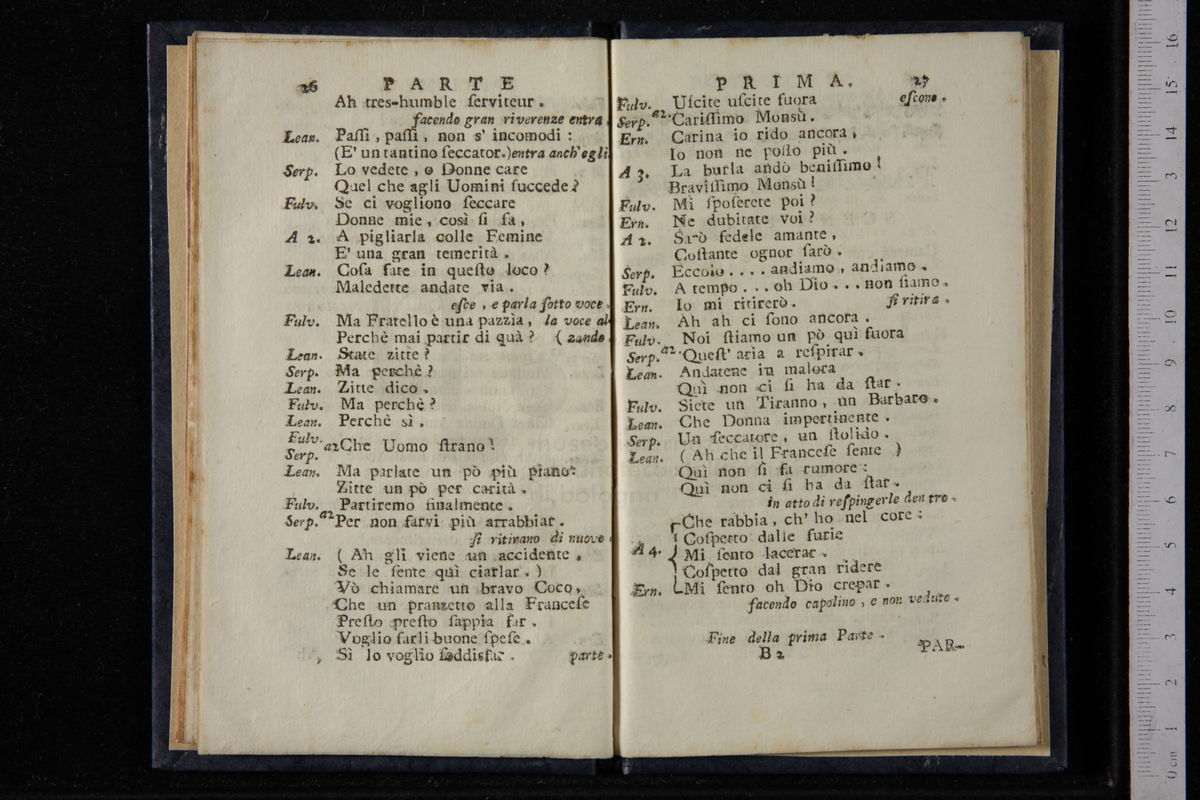 26 PARTE
Ah tres-humble ſerviteur.
facendo gran riverenze entra.
Lean. Paſſi, paſſi, non s' incomodi:
(E' un tantino ſeccator.) entra anch' egli
Serp. Lo vedete, o Donne care
Quel che agli Uomini ſuccede?
Fulv. Se ci vogliono ſeccare
Donne mie, così ſi fa,
A 2. A pigliarla colle Femine
E' una gran temerità.
Lean. Coſa fate in queſto loco?
Maledette andate via.
eſce, e parla ſotto voce.
Fulv. Ma Fratello è una pazzia, la voce al-
Perchè mai partir di quà? (zando.
Lean. State zitte?
Serp. Ma perchè?
Lean. Zitte dico.
Fulv. Ma perchè?
Lean. Perchè sì.
Fulv.
Serp. a2 Che Uomo ſtrano!
Lean. Ma parlate un pò più piano:
Zitte un pò per carità.
Fulv. Partiremo finalmente.
Serp. a2 Per non farvi più arrabbiar.
ſi ritirano di nuovo.
Lean. (Ah gli viene un accidente,
Se le ſente quì ciarlar.)
Vò chiamare un bravo Coco,
Che un pranzetto alla Franceſe
Preſto preſto ſappia far.
Voglio farli buone ſpeſe.
Sì lo voglio ſoddisfar. parte.
PRIMA. 27
Fulv. Uſcite uſcite fuora eſcono.
Serp. a2. Cariſſimo Monsù.
Ern. Carina io rido ancora,
Io non ne poſſo più.
A 3. La burla andò beniſſimo!
Braviſſimo Monsù!
Fulv. Mi ſpoſerete poi?
Ern. Ne dubitate voi?
A 2. Sarò fedele amante,
Coſtante ognor ſarò.
Serp. Eccolo.... andiamo, andiamo.
Fulv. A tempo... oh Dio... non ſiamo.
Ern. Io mi ritirerò. ſi ritira.
Lean. Ah ah ci ſono ancora.
Fulv. Noi ſtiamo un pò quì fuora
Serp. a2. Queſt' aria a reſpirar.
Lean. Andatene in malora
Quì non ci ſi ha da ſtar.
Fulv. Siete un Tiranno, un Barbaro.
Lean. Che Donna impertinente.
Serp. Un ſeccatore, un ſtolido.
Lean. (Ah che il Franceſe ſente)
Quì non ſi fa rumore:
Quì non ci ſi ha da ſtar.
in atto di reſpingerle dentro.
Che rabbia, ch' ho nel core:
Coſpetto dalle furie
A 4. Mi ſento lacerar.
Coſpetto dal gran ridere
Ern. Mi ſento oh Dio crepar.
facendo capolino, e non veduto.
Fine della prima Parte.
B 2 PAR-
0 cm 1 2 3 4 5 6 7 8 9 10 11 12 13 14 15 16